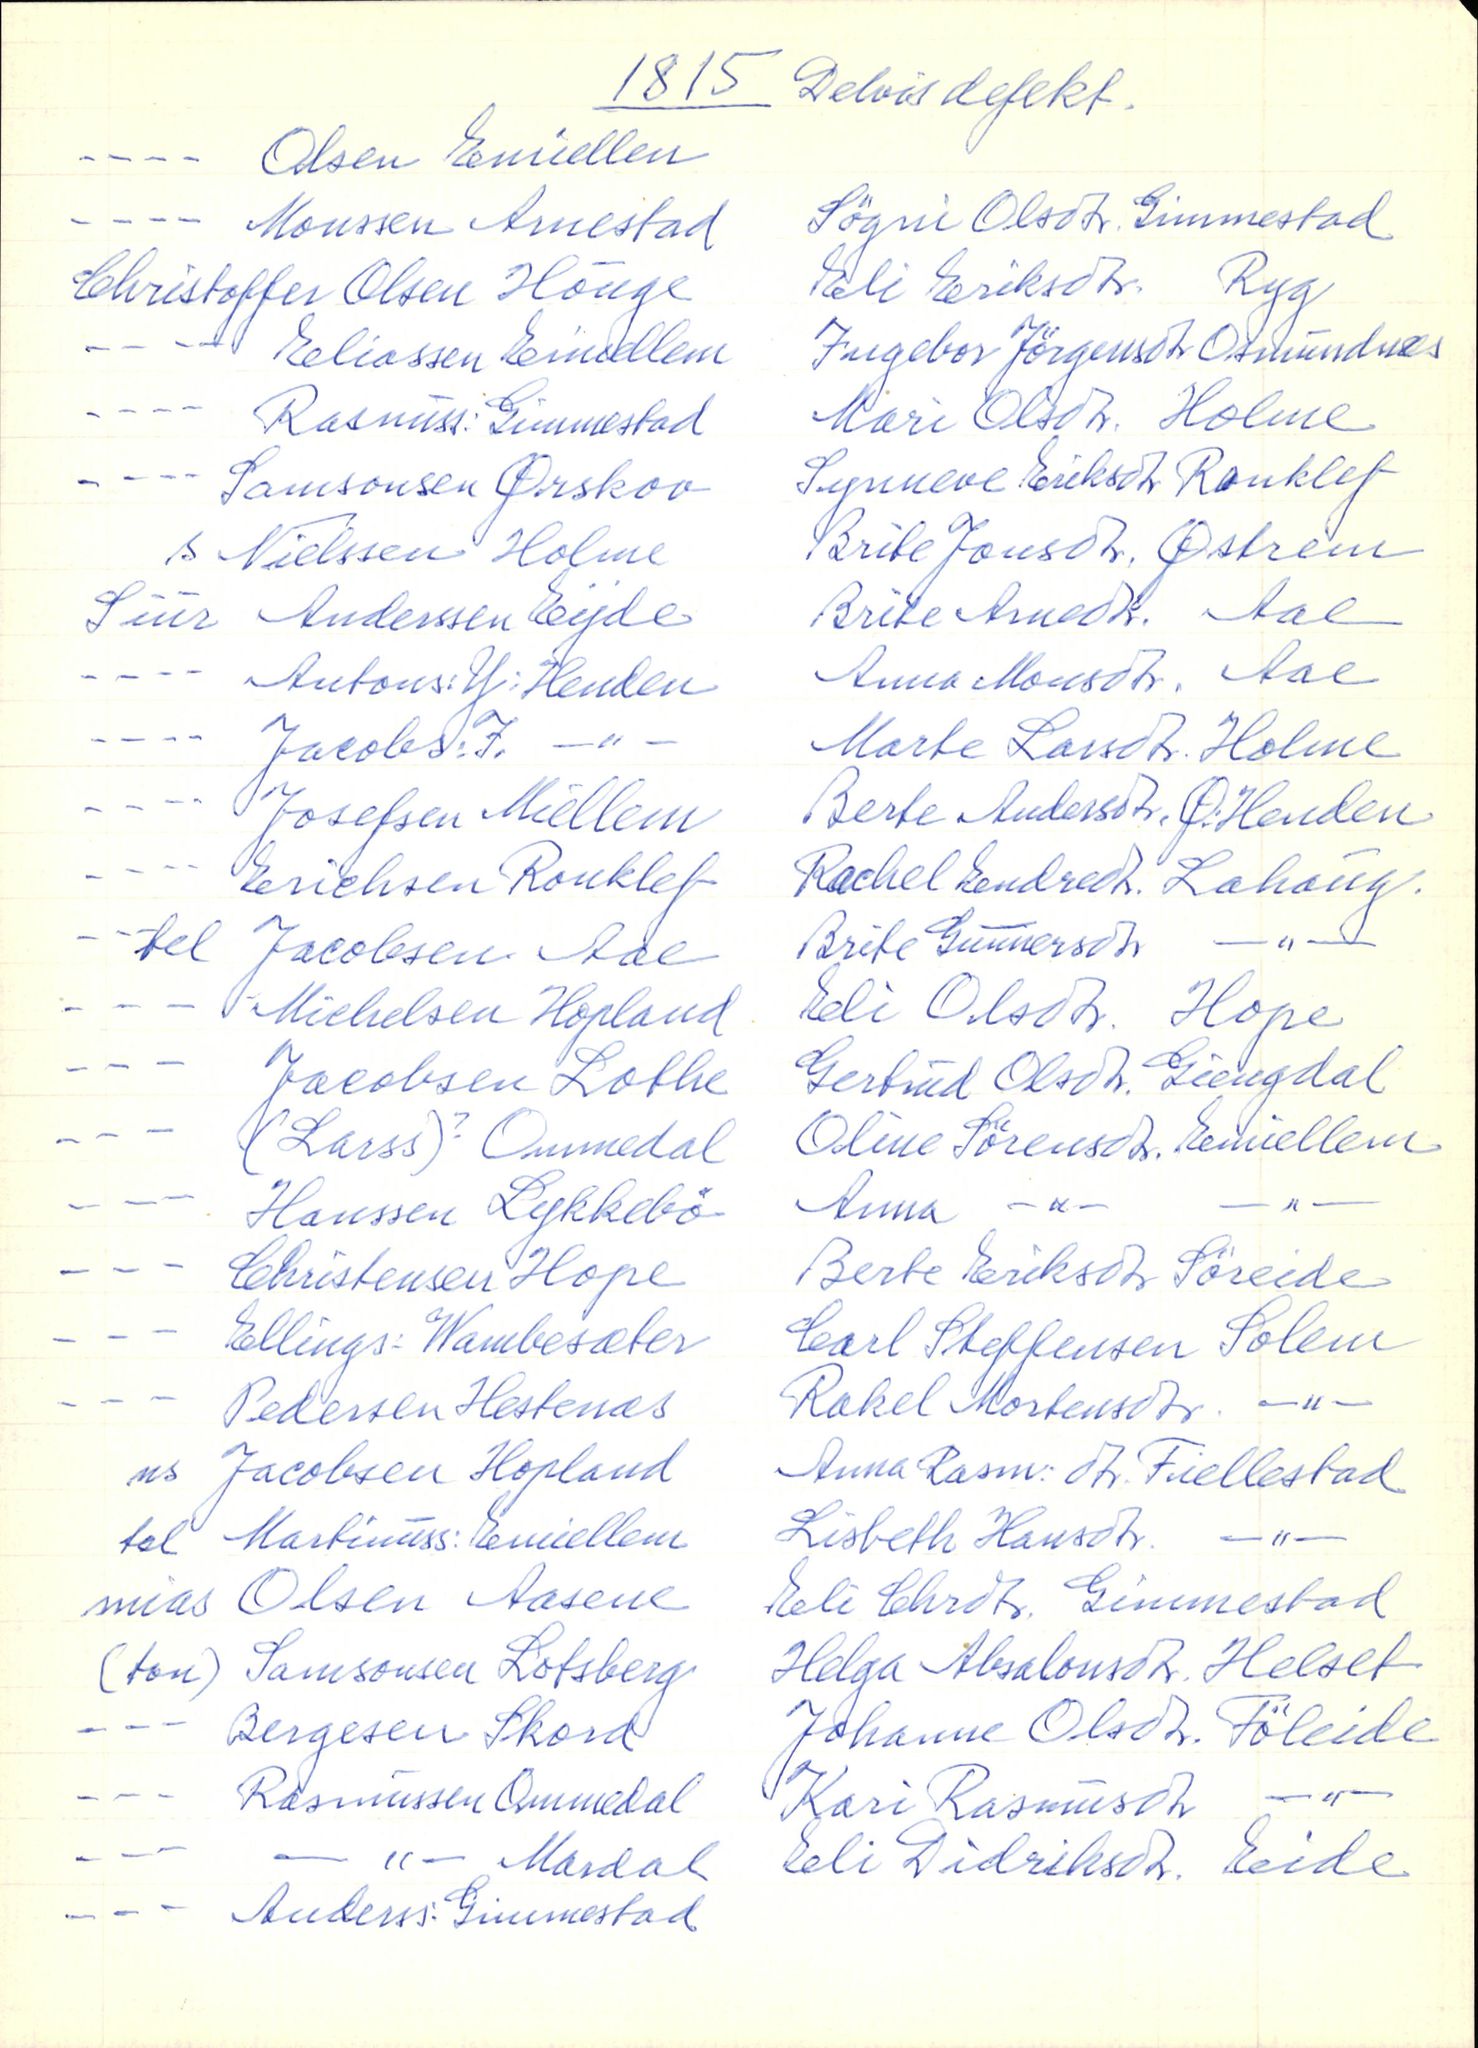 1815 Delvis defekt.
---- Olsen Emiellen
---- Monssen Arnestad Sögni Olsdtr. Gimmestad
Christoffer Olsen Houge Eli Eriksdtr. Ryg
---- Eliassen Emiellem Ingebor Jörgensdtr Osmundnæs
---- Rasmuss: Gimmestad Mari Olsdtr. Holme
---- Samsonsen Ørskov Synneve Eriksdtr Ronklef
s Nielssen Holme Brite Jonsdtr. Østrem
Siur Anderssen Eijde Brite Arnedtr. Aae
---- Antons: Y: Henden Anna Monsdtr. Aae
---- Jacobs: I. —"— Marte Larsdtr. Holme
---- Josefsen Miellem Berte Andersdtr. Ø. Henden
---- Erichsen Ronklef Rachel Endredtr. Lahaug.
--tel Jacobsen Aae Brite Gunnersdtr —"—
--- Michelsen Hopland Eli Olsdtr. Hope
--- Jacobsen Lothe Gertrud Olsdtr. Giengdal
--- (Larss)? Ommedal Oline Sörensdtr. Emiellem
--- Hanssen Lykkebö Anna —"— —"—
--- Christensen Hope Berte Eriksdtr Söreide
--- Ellings: Wambesæter Carl Steffensen Solem
--- Pedersen Hestenæs Rakel Mortensdtr. —"—
ns Jacobsen Hopland Anna Rasm: dtr. Fiellestad
tel Martinuss: Emiellem Lisbeth Hansdtr. —"—
mias Olsen Aasene Eli Chrdtr. Gimmestad
(ton) Samsonsen Lotsberg Helga Absalonsdtr. Helset
--- Bergesen Skord Johanne Olsdtr. Föleide
--- Rasmussen Ommedal Kari Rasmusdtr —"—
--- —"— Mardal Eli Didriksdtr. Eide
--- Anderss: Gimmestad